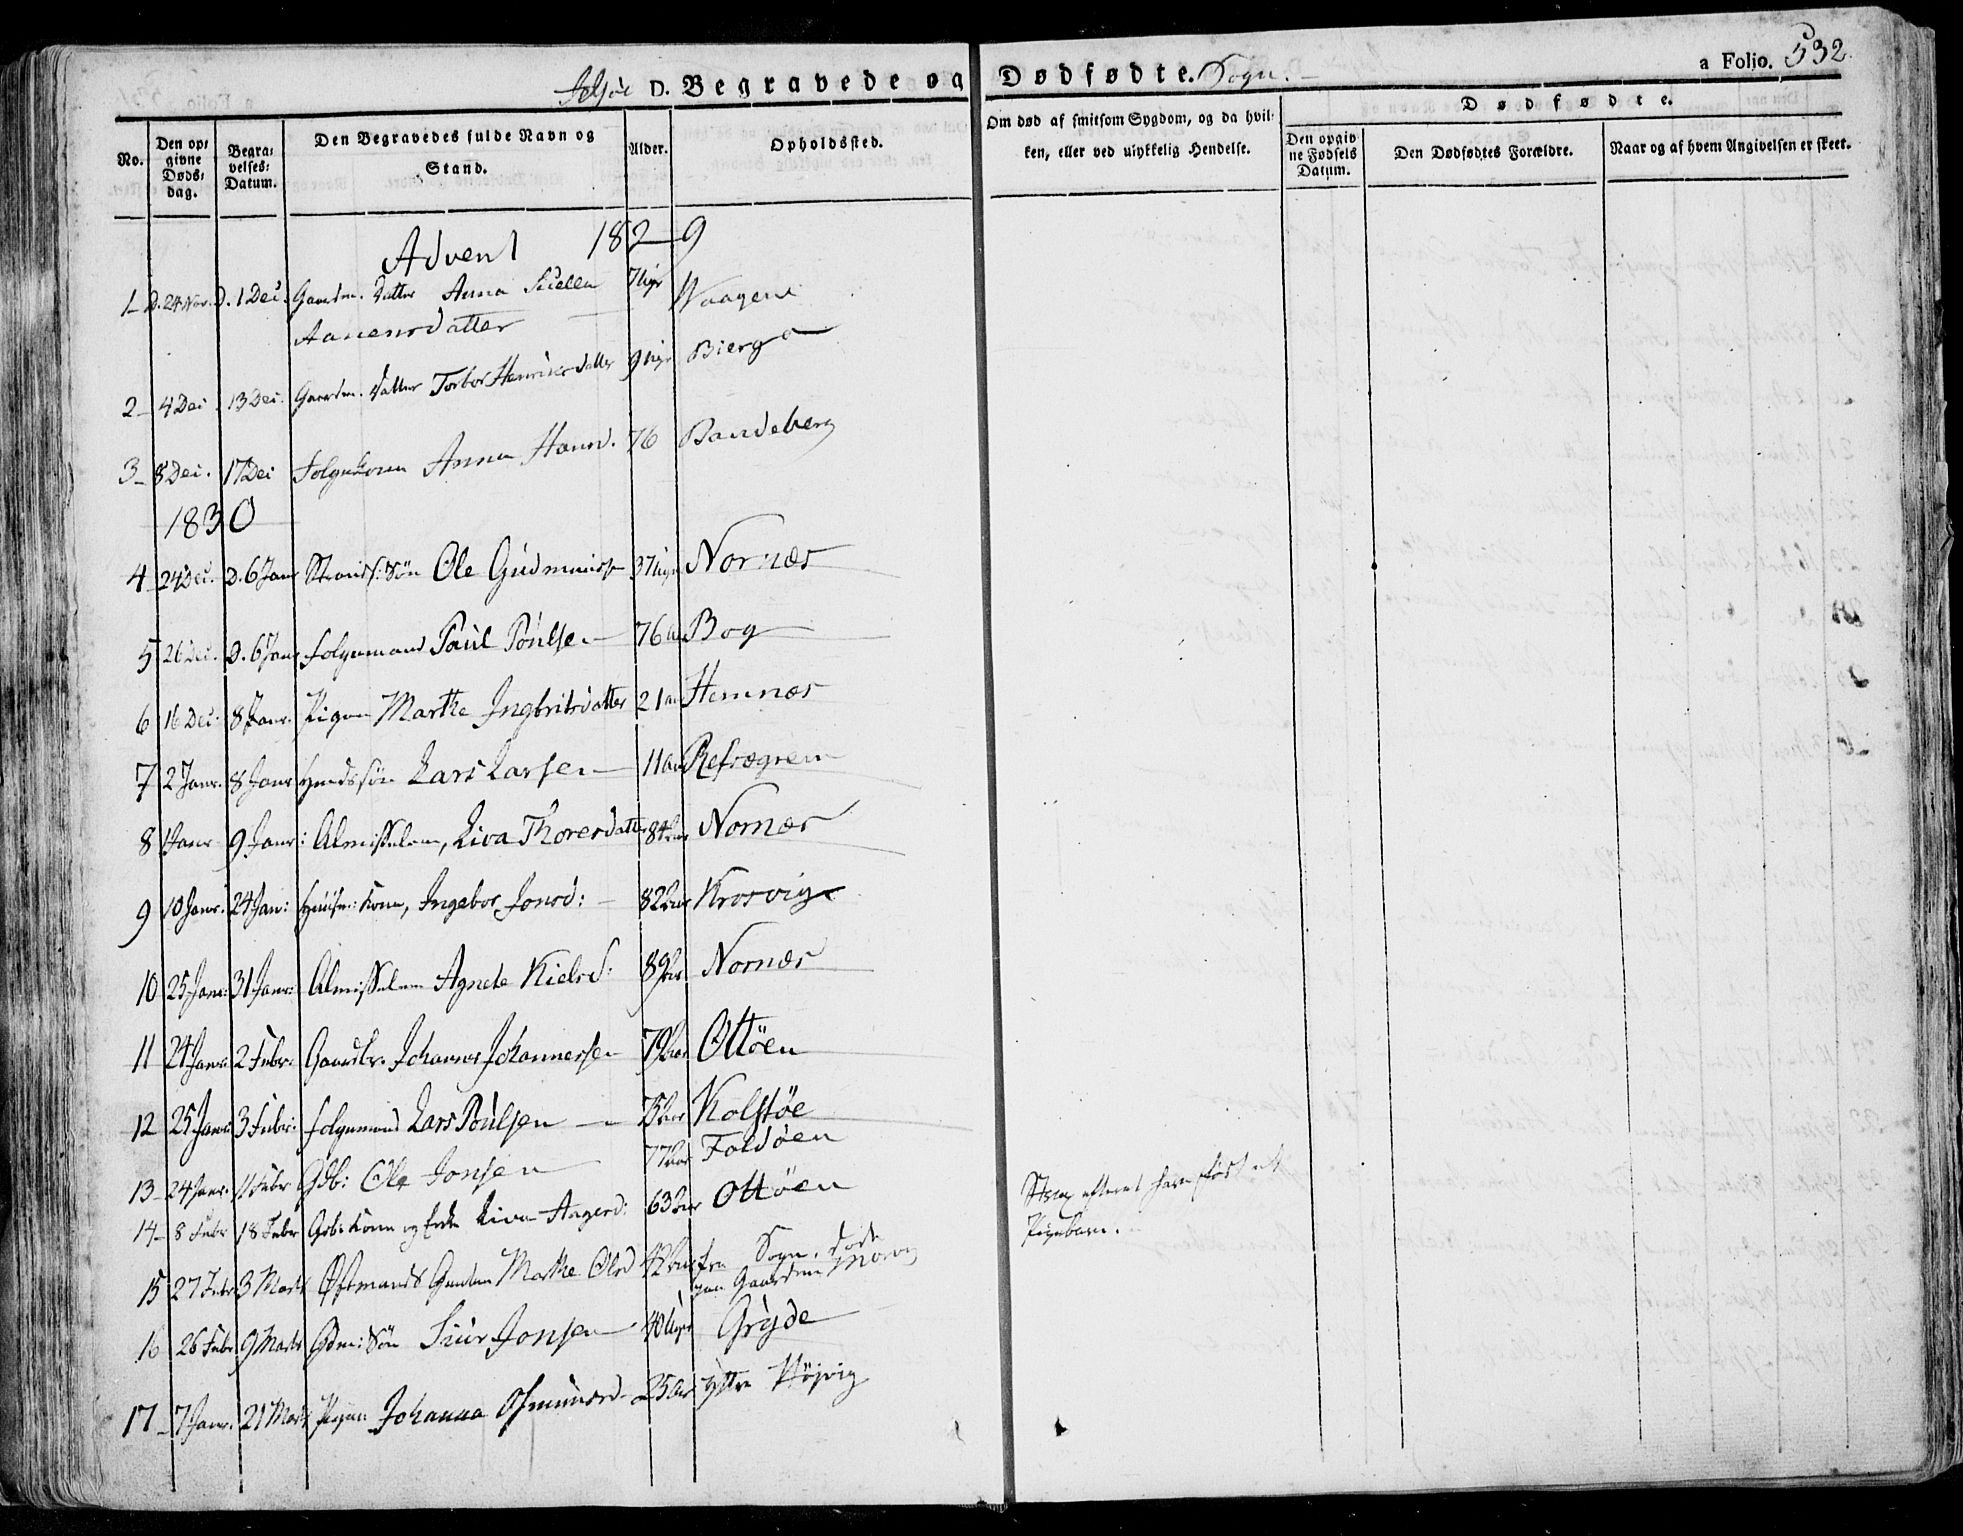 D. Begravede og Dødfødte. Sogn.
a Folio. 532.
No.
Den opgivne Dødsdag.
Begravelses-Datum.
Den Begravedes fulde Navn og Stand.
Alder.
Opholdssted.
Om død af smitsom Sygdom, og da hvilken, eller ved ulykkelig Hendelse.
Dødfødte.
Den opgivne Fødsels Datum.
Den Dødfødtes Forældre.
Naar og af hvem Angivelsen er skeet.
Advent 1829
1 D. 24 Nov. D. 1 Dec. Gaardm. Datter Anna
Waagene
2 4 Dec 13 Dec. Gaardm. Datter Torbor Henriksdatter 9 Bierge
3 8 Dec. 17 Dec Folgekone Anna Hansd. 76 Bandeberg
1830
4 24 Dec. D. 6 Janr Strands. Søn Ole Gudmunds 37 Nornæs
5 26 Dec. D. 6 Janr Folgemand Paul Poulsen 76 aar Bog
6 16 Dec. 8 Janr. Pigen Marthe Ingbritsdatter 21 aar Hemnæs
7 2 Janr. 8 Janr søn Lars Larsen 11 aar
8 1 Janr 9 Janr: Almisselem, Liva Thoresdatter 84 aar Nornæs
9 10 Janr. 24 Jan: Huusm: Kone, Ingebor Jonsd: 82 aar Krosvig
10 25 Janr: 31 Janr: Almisselem Agnete Nielsd: 89 aar Nornæs
11 24 Janr: 2 Febr: Gaardbr. Johannes Johannessen 79 aar Ottøen
12 25 Janr: 3 Febr: Folgemand Lars Poulsen 75 aar Kolstøe
13 24 Janr. 11 Febr Gdb: Ole Jonsen 77 aar Foldøen
14 8 Febr 18 Febr Gdb: Kone og Liva Aagesd: 63 aar Ottøen
15 27 Febr 3 Marts Marthe Olsd 42 aar fra Sogn, døde
paa Gaarden
Strax efter at have født et
Pigebarn.
16 26 Febr. 9 Marts Gdm: Søn Siur Jonsen 40 Uger Gryde
17 7 Janr. 21 Marts Pigen Johanna Osmundsd 25 aar Yttre Høivig